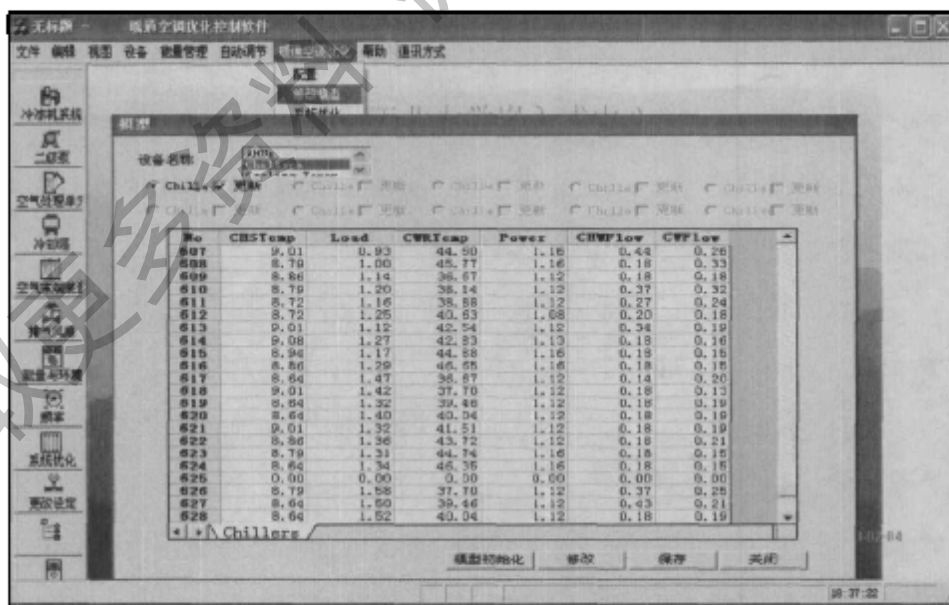 无标题 - 暖通空调优化控制软件
文件 编辑 视图 设备 能量管理 自动调节 帮助 通讯方式
配置
冷冻机系统
二级泵
空气处理单元
冷却塔
排气风扇
能量与环境
频率
系统优化
更改设定
模型
设备名称:
Chille 更新 Chille 更新 Chille 更新 Chille 更新 Chille 更新
Chille 更新 Chille 更新 Chille 更新 Chille 更新 Chille 更新
No CHSTemp Load CWRTemp Power CHWFlow CWFlow
607 9.01 0.93 44.50 1.16 0.44 0.26
608 8.79 1.00 45.77 1.16 0.18 0.33
609 8.86 1.14 36.67 1.12 0.18 0.18
610 8.79 1.20 38.14 1.12 0.37 0.32
611 8.72 1.16 38.88 1.12 0.27 0.24
612 8.72 1.25 40.63 1.08 0.20 0.18
613 9.01 1.12 42.54 1.12 0.34 0.19
614 9.08 1.27 42.83 1.13 0.18 0.16
615 8.94 1.17 44.88 1.16 0.18 0.15
616 8.86 1.29 46.65 1.16 0.18 0.15
617 8.64 1.47 36.87 1.12 0.14 0.20
618 9.01 1.42 37.70 1.12 0.18 0.13
619 8.64 1.32 39.46 1.12 0.18 0.19
620 8.64 1.40 40.04 1.12 0.18 0.19
621 9.01 1.32 41.51 1.12 0.18 0.19
622 8.86 1.36 43.72 1.12 0.18 0.21
623 8.79 1.31 44.74 1.16 0.18 0.15
624 8.64 1.34 46.35 1.16 0.18 0.15
625 0.00 0.00 0.00 0.00 0.00 0.00
626 8.79 1.58 37.70 1.12 0.37 0.25
627 8.64 1.50 39.46 1.12 0.43 0.21
628 8.64 1.52 40.04 1.12 0.18 0.19
Chillers
模型初始化 修改 保存 关闭
18:37:22